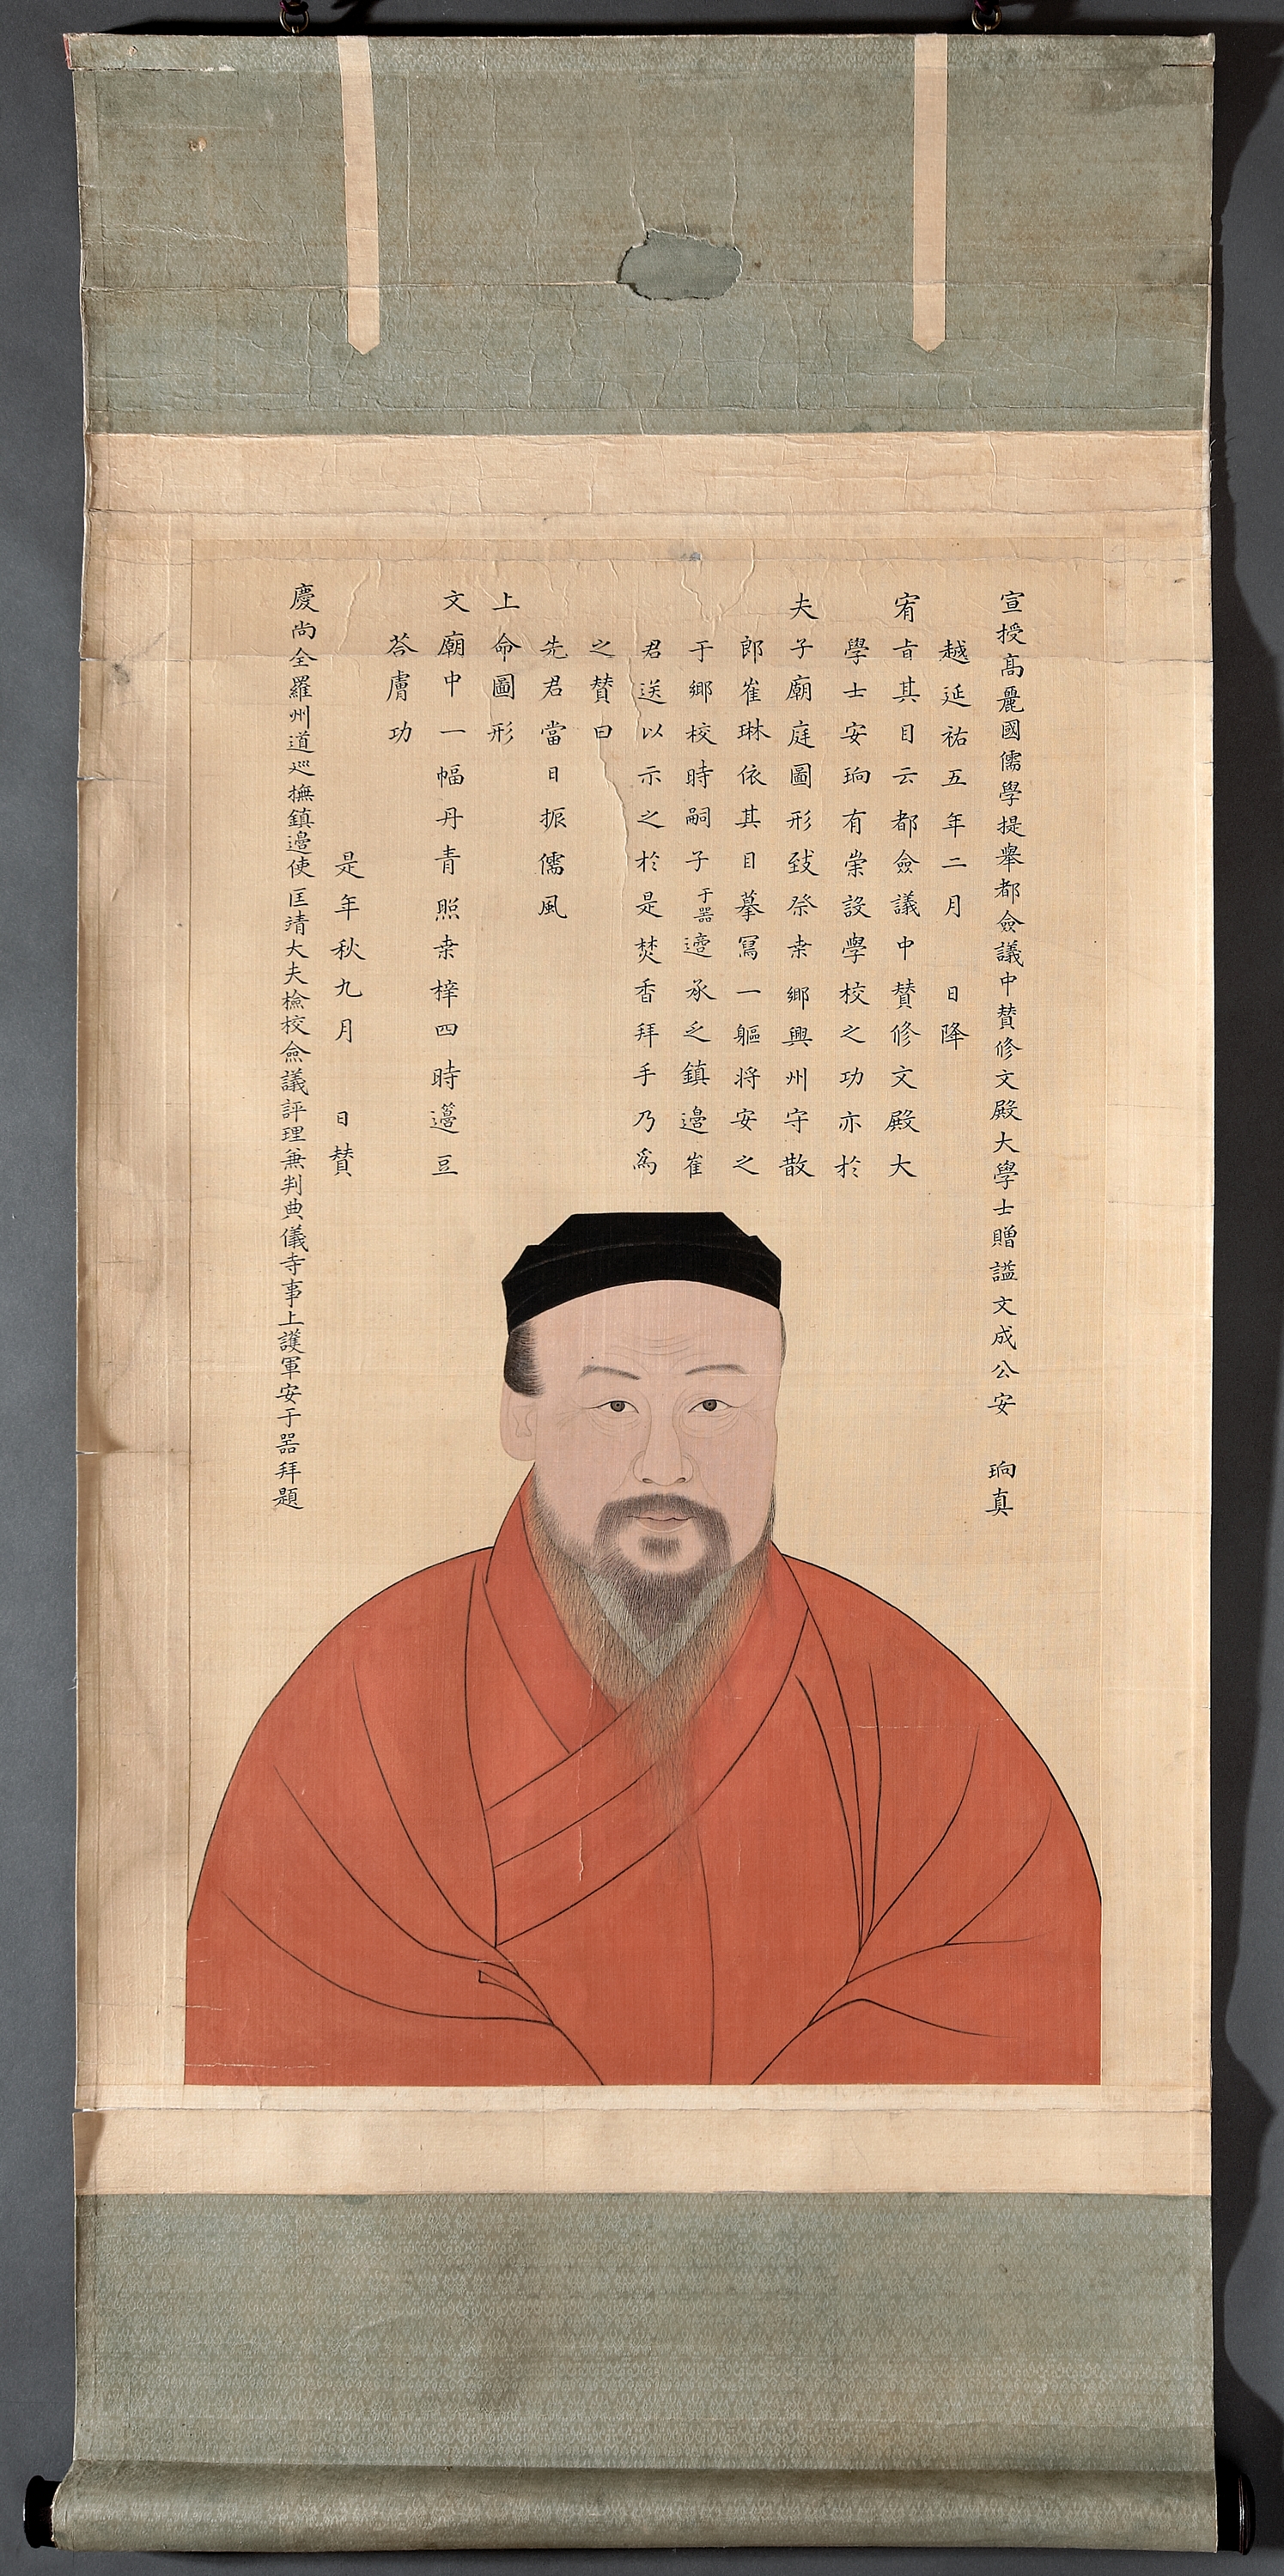 宣授髙麗國儒學提擧都僉議中賛修文殿大學士贈謚文成公安 珦真
越延祐五年二月 日降
宥旨其目云都僉議中賛修文殿大
學士安珦有崇設學校之功亦於
夫子廟庭圖形致祭桒鄉興州守散
郎崔琳依其目摹寫一軀将安之
于鄉校時嗣子于器邉承乏鎮邉崔
君送以示之於是焚香拜手乃爲
之賛曰
先君當日振儒風
上命圖形
文廟中一幅丹青照桒梓四時籩豆
荅膚功
是年秋九月 日賛
慶尚全羅州道廵撫鎮邉使匡靖大夫檢校僉議評理兼判典儀寺事上護軍安于器拜題